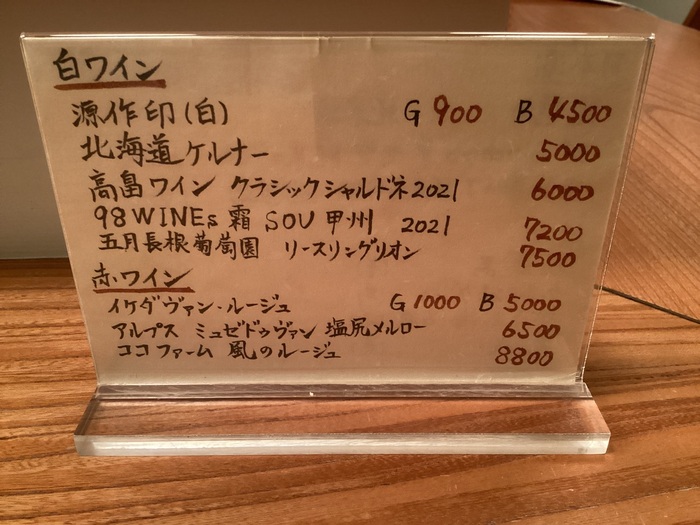 白ワイン
源作印(白) G 900 B 4500
北海道ケルナー 5000
高畠ワイン クラシックシャルドネ2021 6000
98WINEs 霜 SOU 甲州 2021 7200
五月長根葡萄園 リースリングリオン 7500
赤ワイン
イケダヴァン・ルージュ G 1000 B 5000
アルプス ミュゼドゥヴァン 塩尻メルロー 6500
ココファーム 風のルージュ 8800